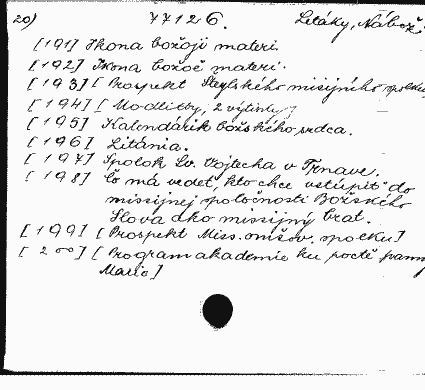 20) 77126. Letáky, Nábož.
[191] Ikona božoji materi.
[192] Ikona božoě materi.
[193] [Prospekt Steylského misijního spolku
[194] [Modlitby, 2 výtisky]
[195] Kalendárik božského srdca.
[196] Litánia.
[197] Spolok Sv. Vojtecha v Trnave.
[198] Čo má vedeť, kto chce vstúpiť do
missijnej spoločnosti Božského
Slova ako missijný brat.
[199] [Prospekt Miss. spolku]
[200] [Program akademie ku poctě panny
Marie]